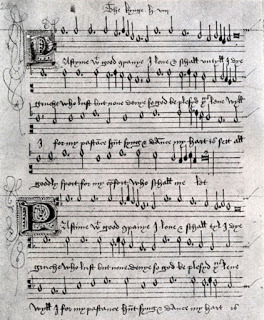 The kynge h viij
Pastyme wt good companye I loue & schall vntyll I dye
gruche who lust but none denye so god be plesyd þus leue wyll
I for my pastance hunt syng & dance my hart is sett all
goodly sport for my comfort who schall me let
Pastyme wt good companye I loue & schall tyl I dye
gruche who lust but none denye so god be plesyd þus leue
wyll I for my pastance hunt syng & dance my hart is